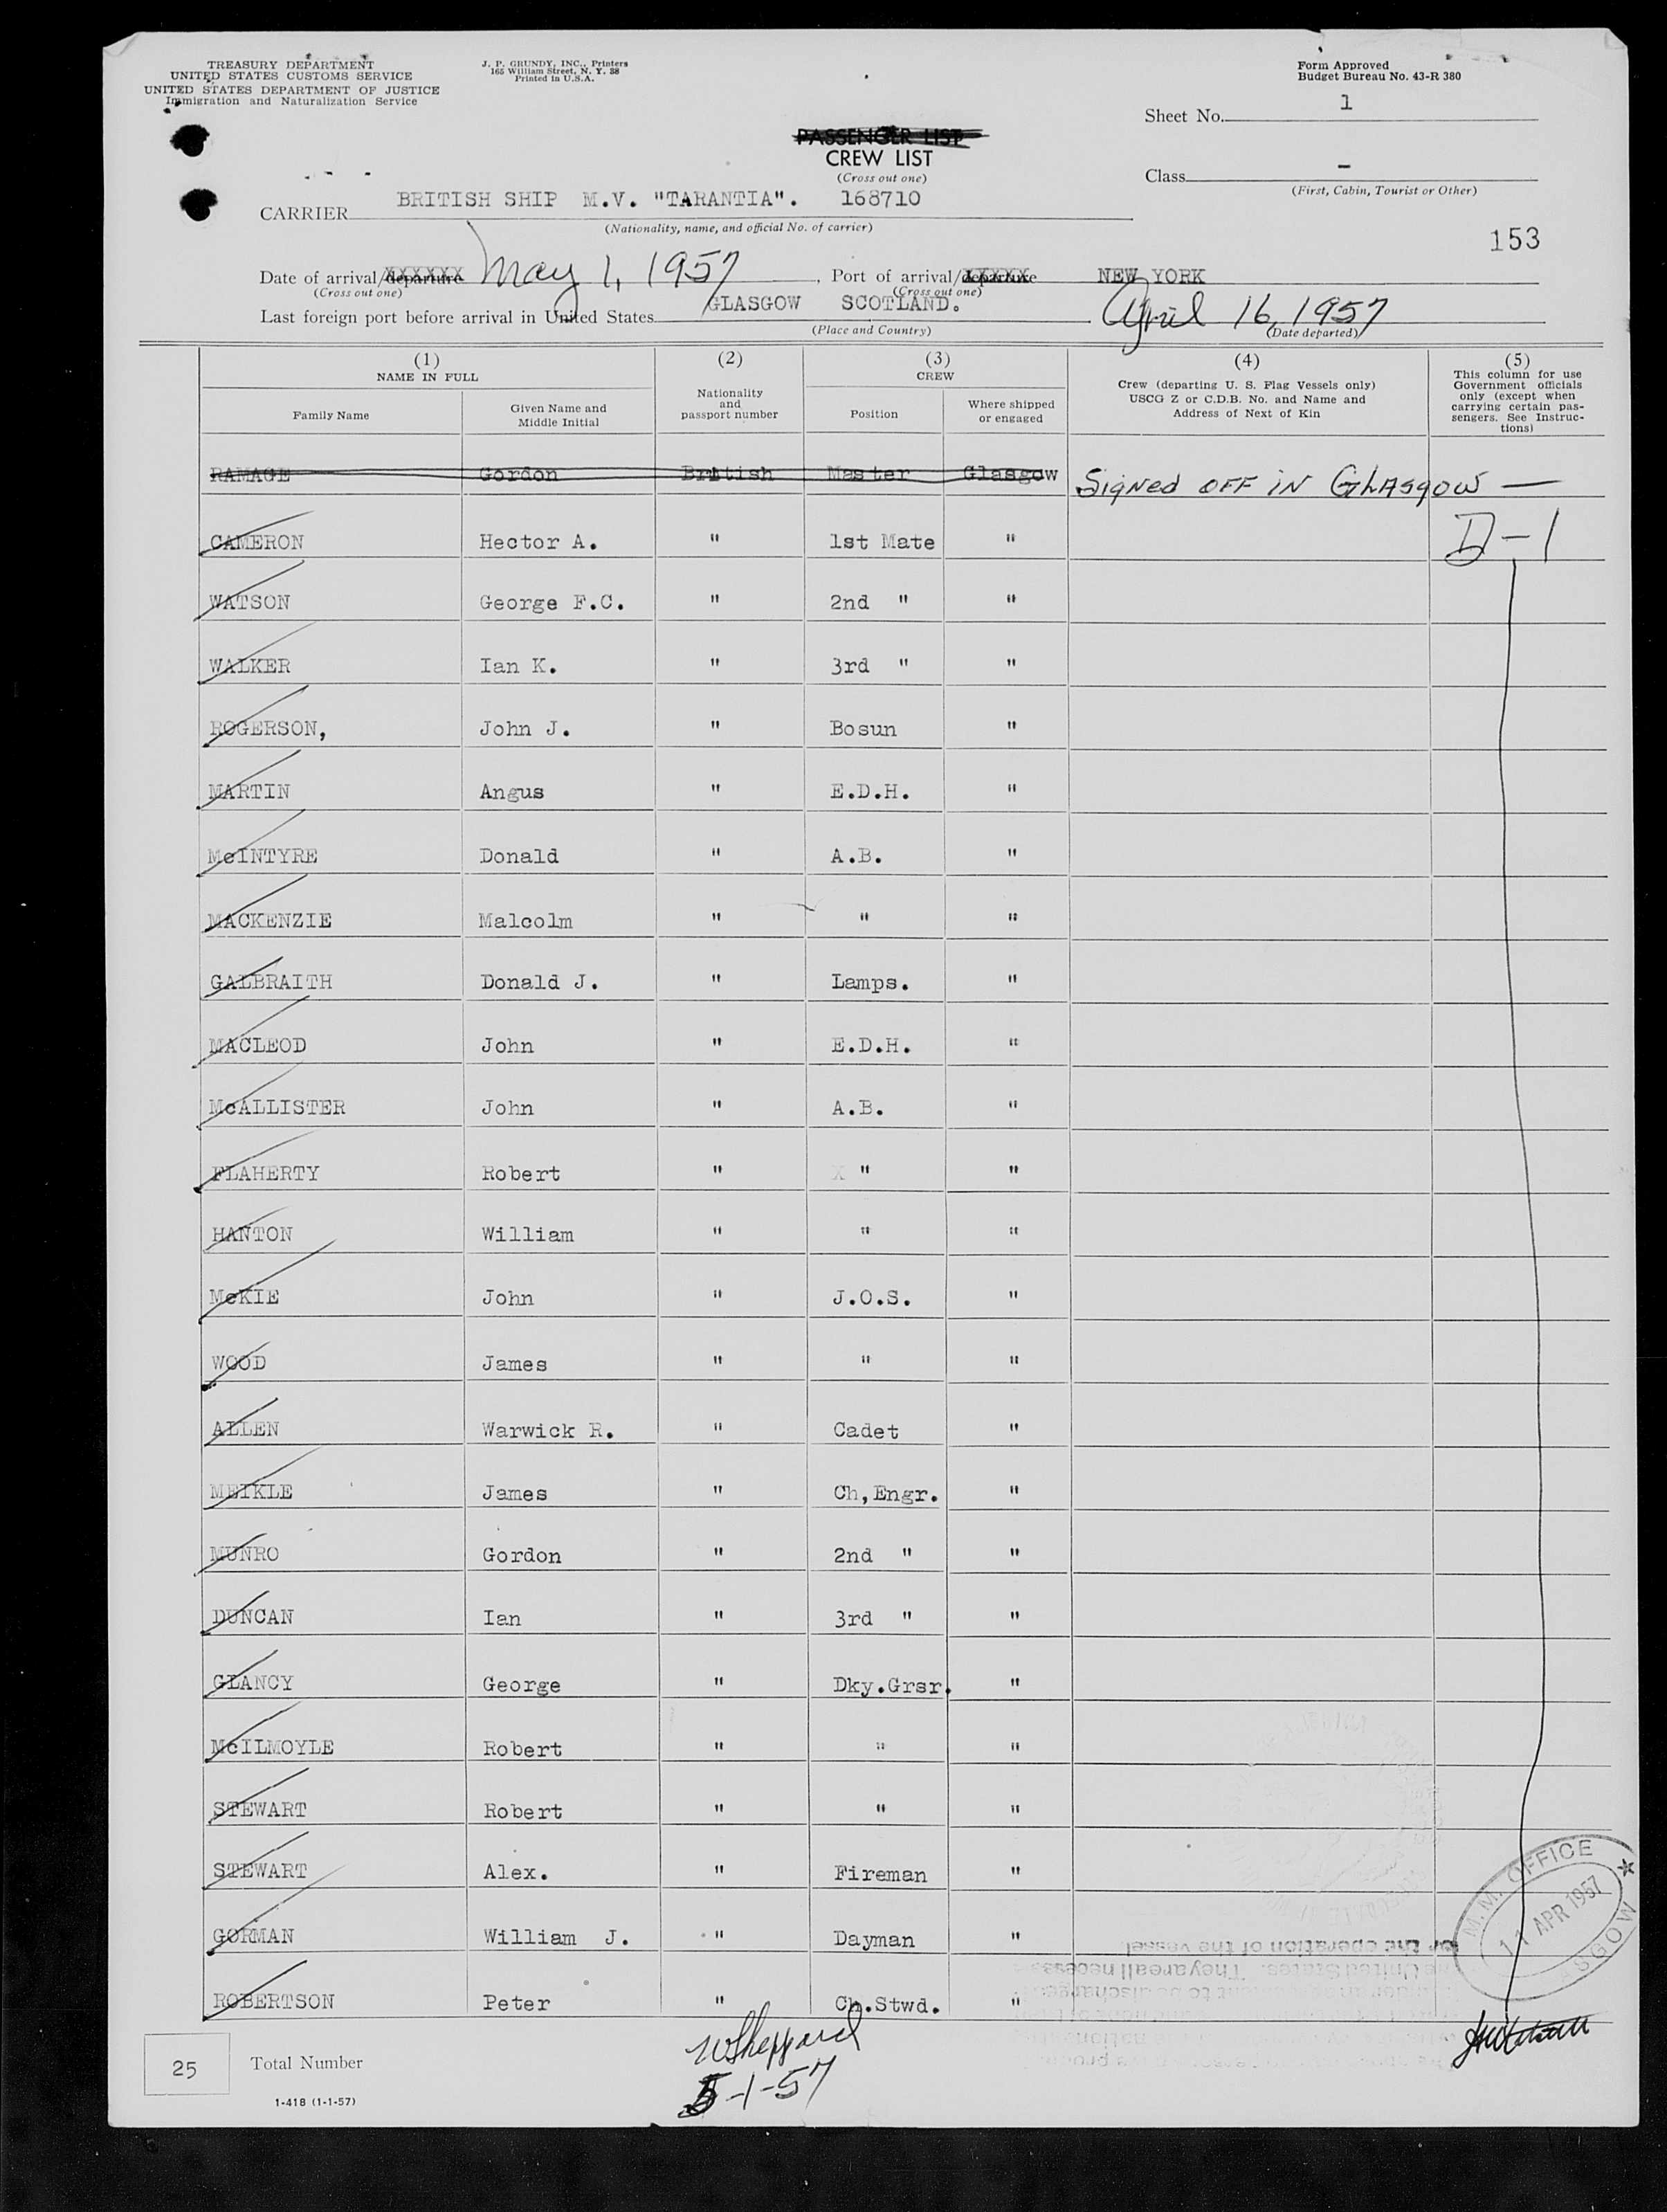 TREASURY DEPARTMENT
UNITED STATES CUSTOMS SERVICE
UNITED STATES DEPARTMENT OF JUSTICE
Immigration and Naturalization Service
J. P. GRUNDY, INC., Printers
165 William Street, N. Y. 38
Printed in U.S.A.
Form Approved
Budget Bureau No. 43-R 380
Sheet No. 1
PASSENGER LIST
CREW LIST
(Cross out one)
Class -
(First, Cabin, Tourist or Other)
CARRIER BRITISH SHIP M.V. "TARANTIA". 168710
(Nationality, name, and official No. of carrier)
153
Date of arrival/departure May 1, 1957, Port of arrival/departure NEW YORK
(Cross out one) (Cross out one)
Last foreign port before arrival in United States GLASGOW SCOTLAND. April 16, 1957
(Place and Country) (Date departed)
(1) (2) (3) (4) (5)
NAME IN FULL
Family Name
Given Name and Middle Initial
Nationality and passport number
CREW
Position
Where shipped or engaged
Crew (departing U. S. Flag Vessels only)
USCG Z or C.D.B. No. and Name and
Address of Next of Kin
This column for use
Government officials
only (except when
carrying certain pas-
sengers. See Instruc-
tions)
RAMAGE Gordon British Master Glasgow Signed OFF iN GLAsgow —
CAMERON Hector A. " 1st Mate " D-1
WATSON George F.C. " 2nd " "
WALKER Ian K. " 3rd " "
ROGERSON, John J. " Bosun "
MARTIN Angus " E.D.H. "
McINTYRE Donald " A.B. "
MACKENZIE Malcolm " " "
GALBRAITH Donald J. " Lamps. "
MACLEOD John " E.D.H. "
McALLISTER John " A.B. "
FLAHERTY Robert " X " "
HANTON William " " "
McKIE John " J.O.S. "
WOOD James " " "
ALLEN Warwick R. " Cadet "
MEIKLE James " Ch,Engr. "
MUNRO Gordon " 2nd " "
DUNCAN Ian " 3rd " "
GLANCY George " Dky.Grsr. "
McILMOYLE Robert " " "
STEWART Robert " " "
STEWART Alex. " Fireman "
GORMAN William J. " Dayman "
ROBERTSON Peter " Ch.Stwd. "
M.M. OFFICE
11 APR 1957
25 Total Number
WSheppard
5-1-57
1-418 (1-1-57)